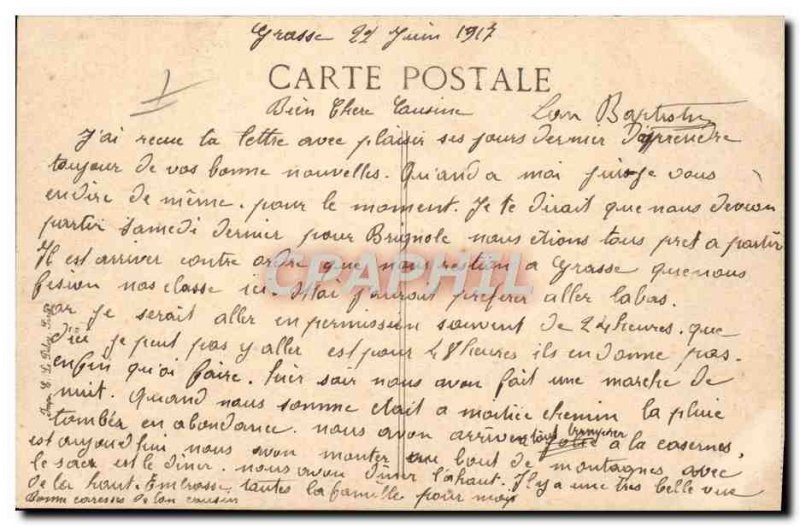 Grasse 22 Juin 1917
CARTE POSTALE
Bien Chere Cousine
Ton Baptistin
J'ai recue ta lettre avec plaisir ses jours dernier D'apprendre
toujour de vos bonne nouvelles. Quand a moi puis-je vous
endire de même. pour le moment. Je te dirait que nous devion
partir Samedi dernier pour Brignole nous étions tous pret a partir
Il est arriver contre ordre que nous restion a Grasse que nous
fision nos classe ici. Moi j'aurait préférer aller labas.
car je serait aller en permission souvent de 24 heures. que
d'ici je peut pas y aller est pour 48 heures ils en donne pas.
enfin qu'ai faire. hier soir nous avon fait une marche de
nuit. Quand nous somme était a moitié chemin la pluie
tomber en abondance. nous avon arriver tous tremper à la casernes,
est aujourd'hui nous avon monter au bout de montagnes avec
le sac est le diner. nous avon diner l'ahaut. Il y a une tres belle vue
de la haut. Embrasse toutes la famille pour moi
Bonne caresses de ton cousin
CPAPHIL